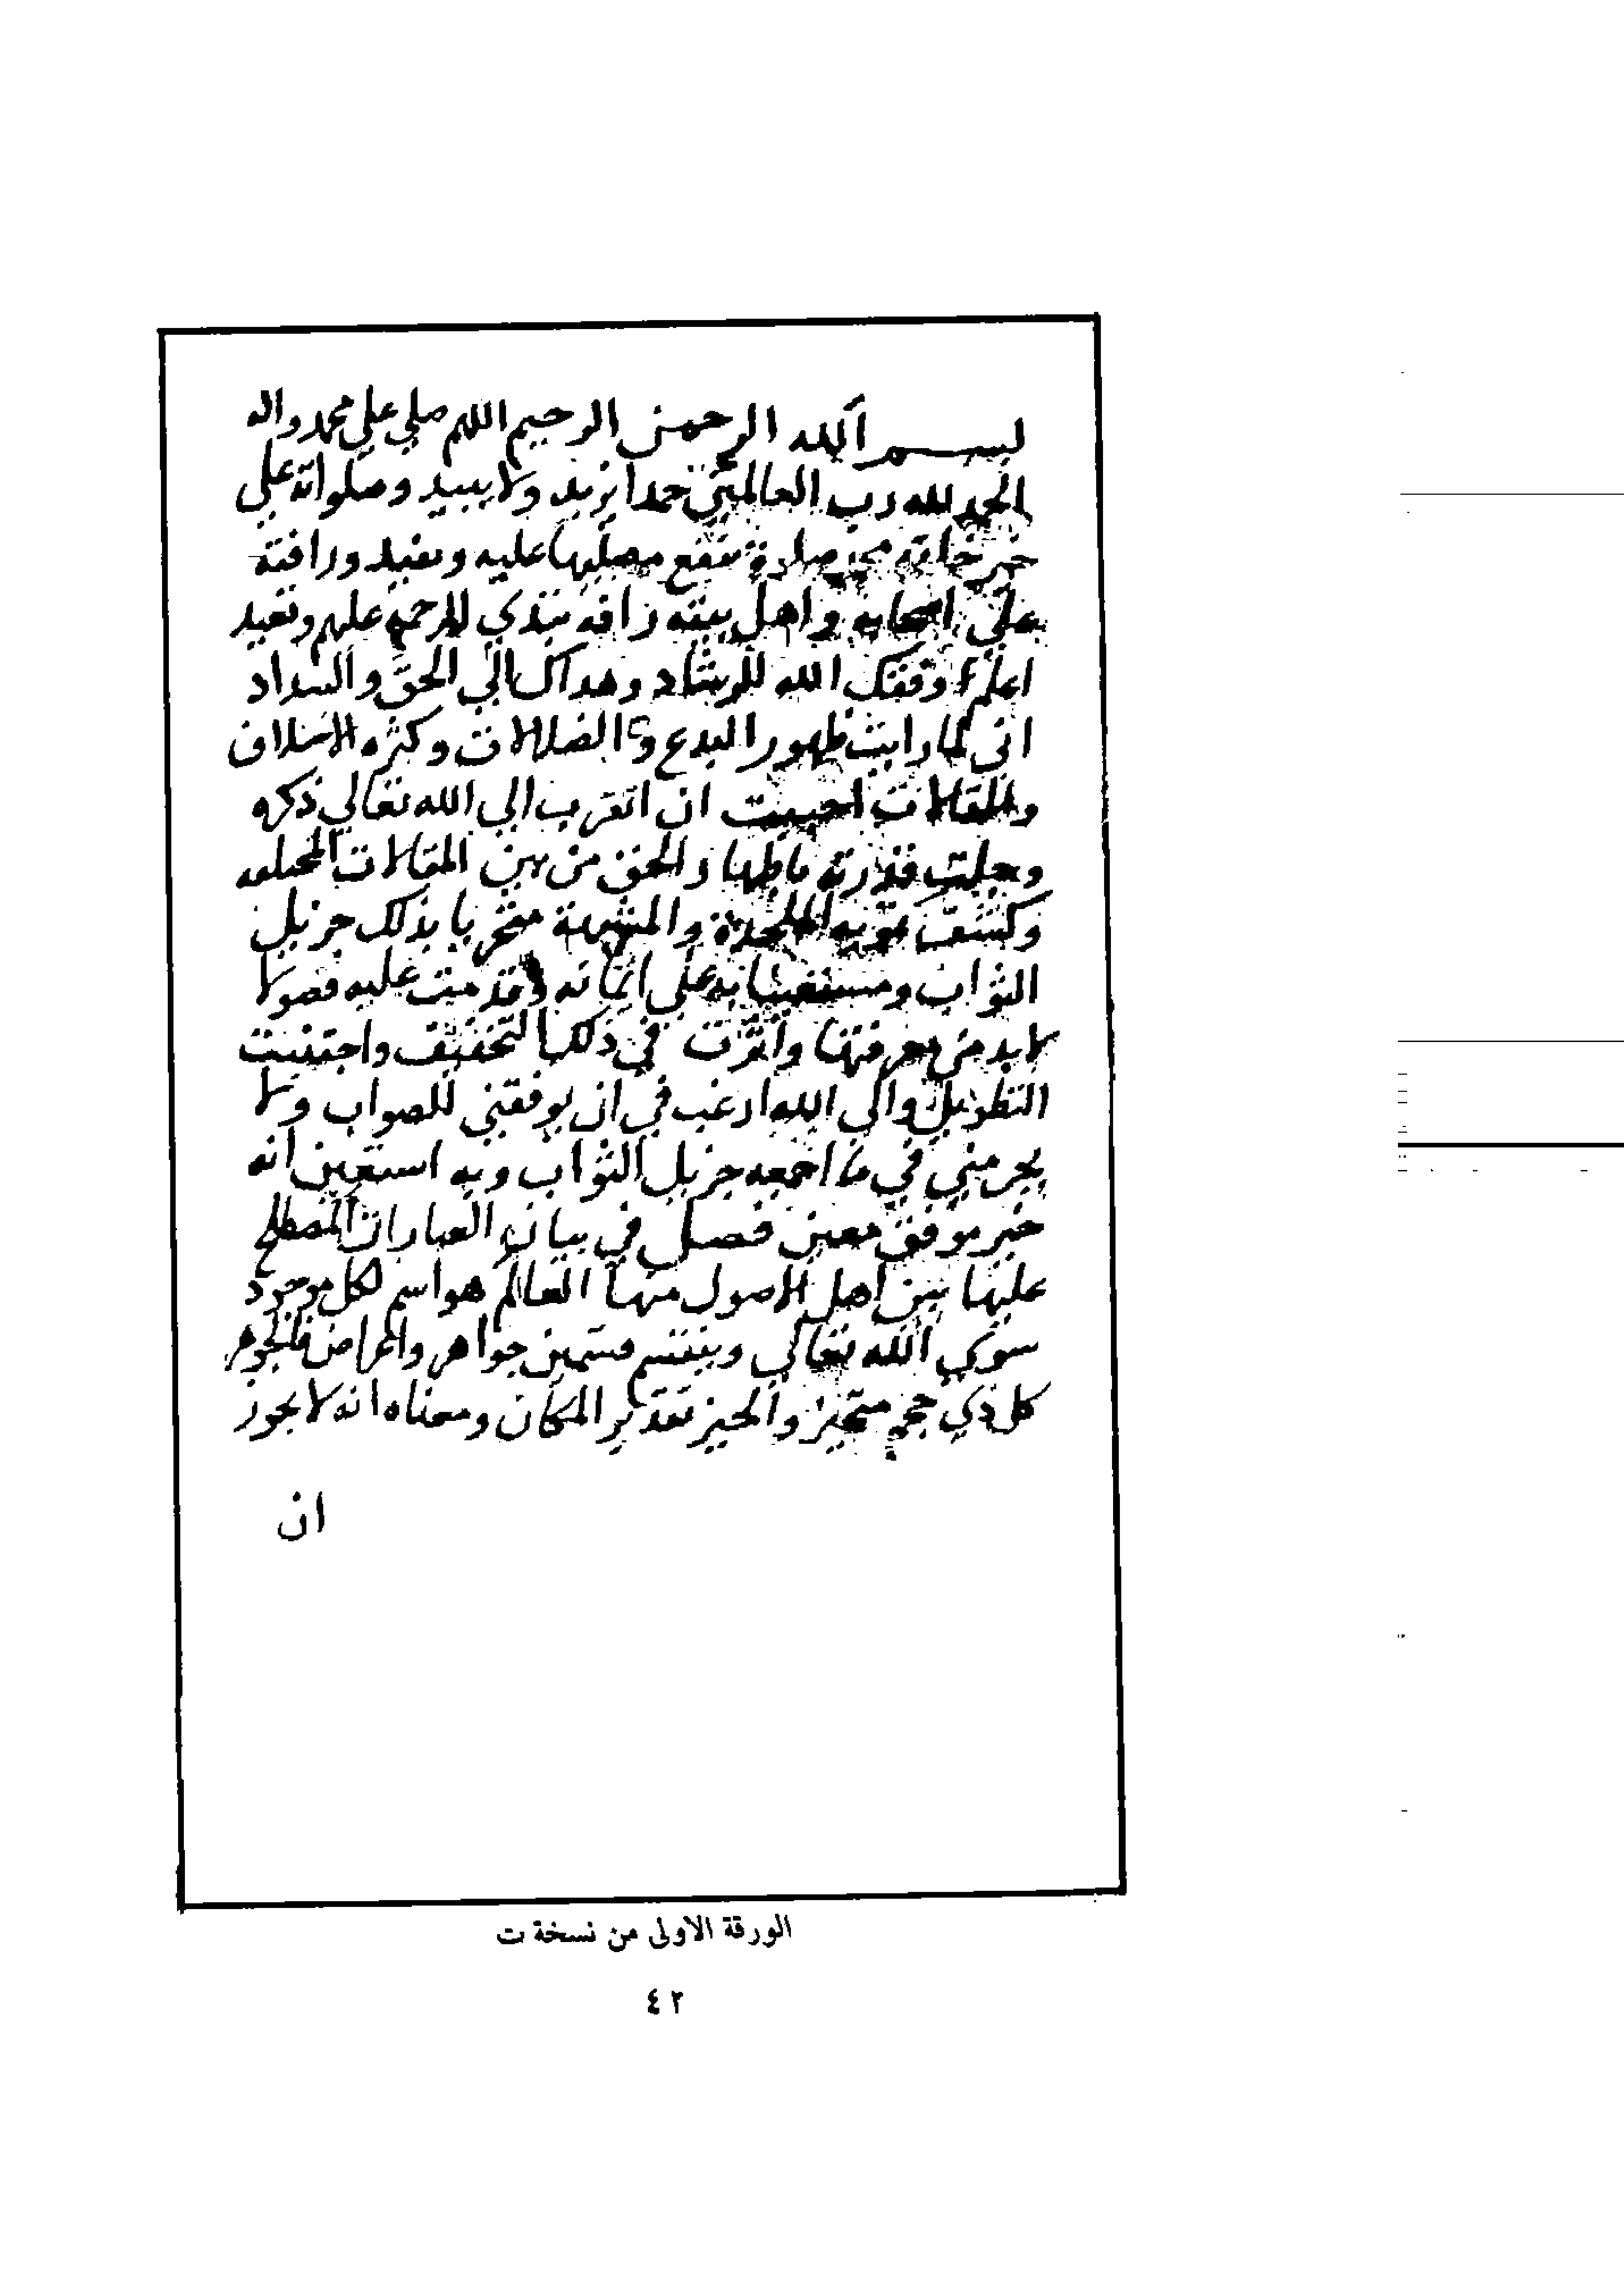 بسم الله الرحمن الرحيم اللهم صلي علي محمد واله
الحمد لله رب العالمين حمدا يزيد ولا يبيد وصلواته علي
خير خلقه محمد صلاة تنفع مصليها عليه وتفيد ورافته
علي اصحابه واهل بيته رافة تبتدي الرحمة عليهم وتعيد
اعلم وفقك الله للرشاد وهداك الي الحق والسداد
اني لما رايت ظهور البدع والضلالات وكثره الاختلاف
والمقالات احببت ان اتقرب الي الله تعالي ذكره
وجلت قدرته باظهار الحق من بين المقالات المختلفه
وكشف تمويه الملحدة والمشبهة متحريا بذلك جزيل
الثواب ومستعينا به علي اتمامه وقدمت عليه فصولا
لا بد من معرفتها واثرت في ذلك التخفيف واجتنبت
التطويل والي الله ارغب في ان يوفقني للصواب ولا
يحرمني في ما اجمعه جزيل الثواب وبه استعين انه
خير موفق معين فصل في بيان العبارات المصطلح
عليها بين اهل الاصول منها العالم هو اسم لكل موجود
سوي الله تعالي وينقسم قسمين جواهر واعراض فالجوهر
كل ذي حجم متحيز والحيز تقدير المكان ومعناه انه لا يجوز
ان
الورقة الاولى من نسخة ت
٤٢